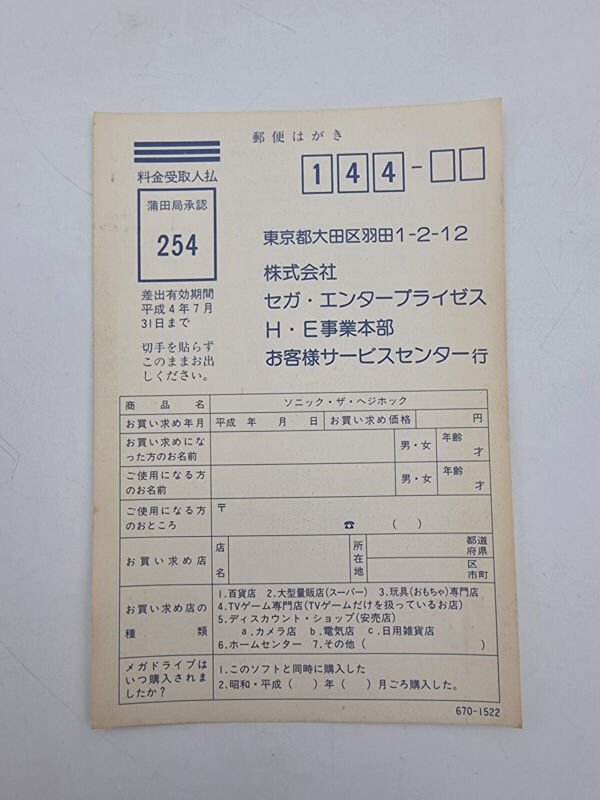 郵便はがき
料金受取人払
蒲田局承認
254
差出有効期間
平成4年7月
31日まで
切手を貼らず
このままお出
しください。
144-
東京都大田区羽田1-2-12
株式会社
セガ・エンタープライゼス
H・E事業本部
お客様サービスセンター行
商品名 ソニック・ザ・ヘジホック
お買い求め年月 平成 年 月 日 お買い求め価格 円
お買い求めにな
った方のお名前 男・女 年齢 才
ご使用になる方
のお名前 男・女 年齢 才
ご使用になる方
のおところ 〒 ☎ ( )
お買い求め店 店名 所在地 都道府県 区市町
お買い求め店の
種類
1.百貨店 2.大型量販店(スーパー) 3.玩具(おもちゃ)専門店
4.TVゲーム専門店(TVゲームだけを扱っているお店)
5.ディスカウント・ショップ(安売店)
a.カメラ店 b.電気店 c.日用雑貨店
6.ホームセンター 7.その他( )
メガドライブは
いつ購入されま
したか?
1.このソフトと同時に購入した
2.昭和・平成( )年( )月ごろ購入した。
670-1522